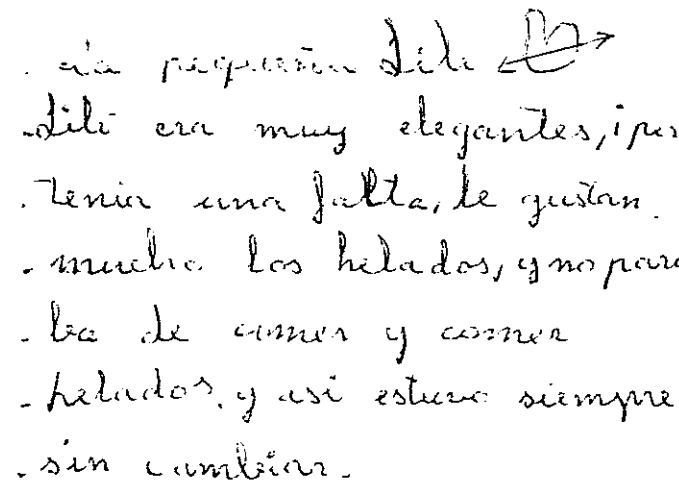 . La pequeña Lili
-Lili era muy elegantes, ¡per
. Tenia una falta, le gustan.
. mucho los helados, y no para
. ba de comer y comer
- helados, y asi estuvo siempre
. sin cambiar.